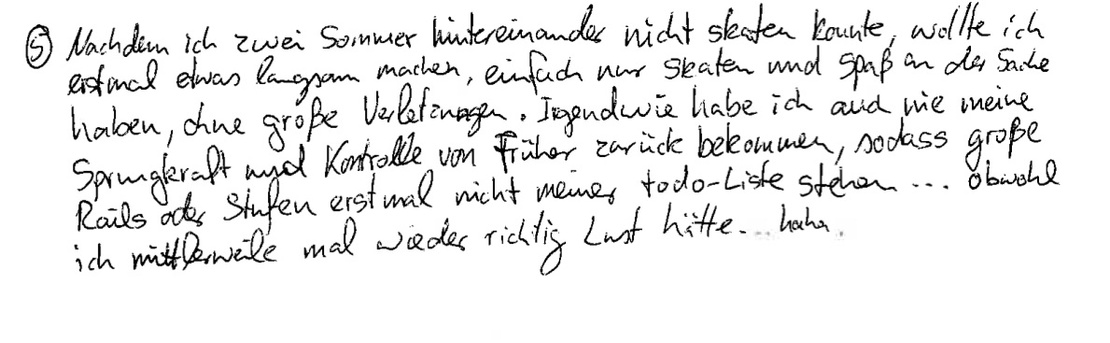 ⑤ Nachdem ich zwei Sommer hintereinander nicht skaten konnte, wollte ich
erstmal etwas langsam machen, einfach nur skaten und Spaß an der Sache
haben, ohne große Verletzungen. Irgendwie habe ich auch nie meine
Sprungkraft und Kontrolle von früher zurück bekommen, sodass große
Rails oder Stufen erstmal nicht meiner todo-Liste stehen... obwohl
ich mittlerweile mal wieder richtig Lust hätte... haha.